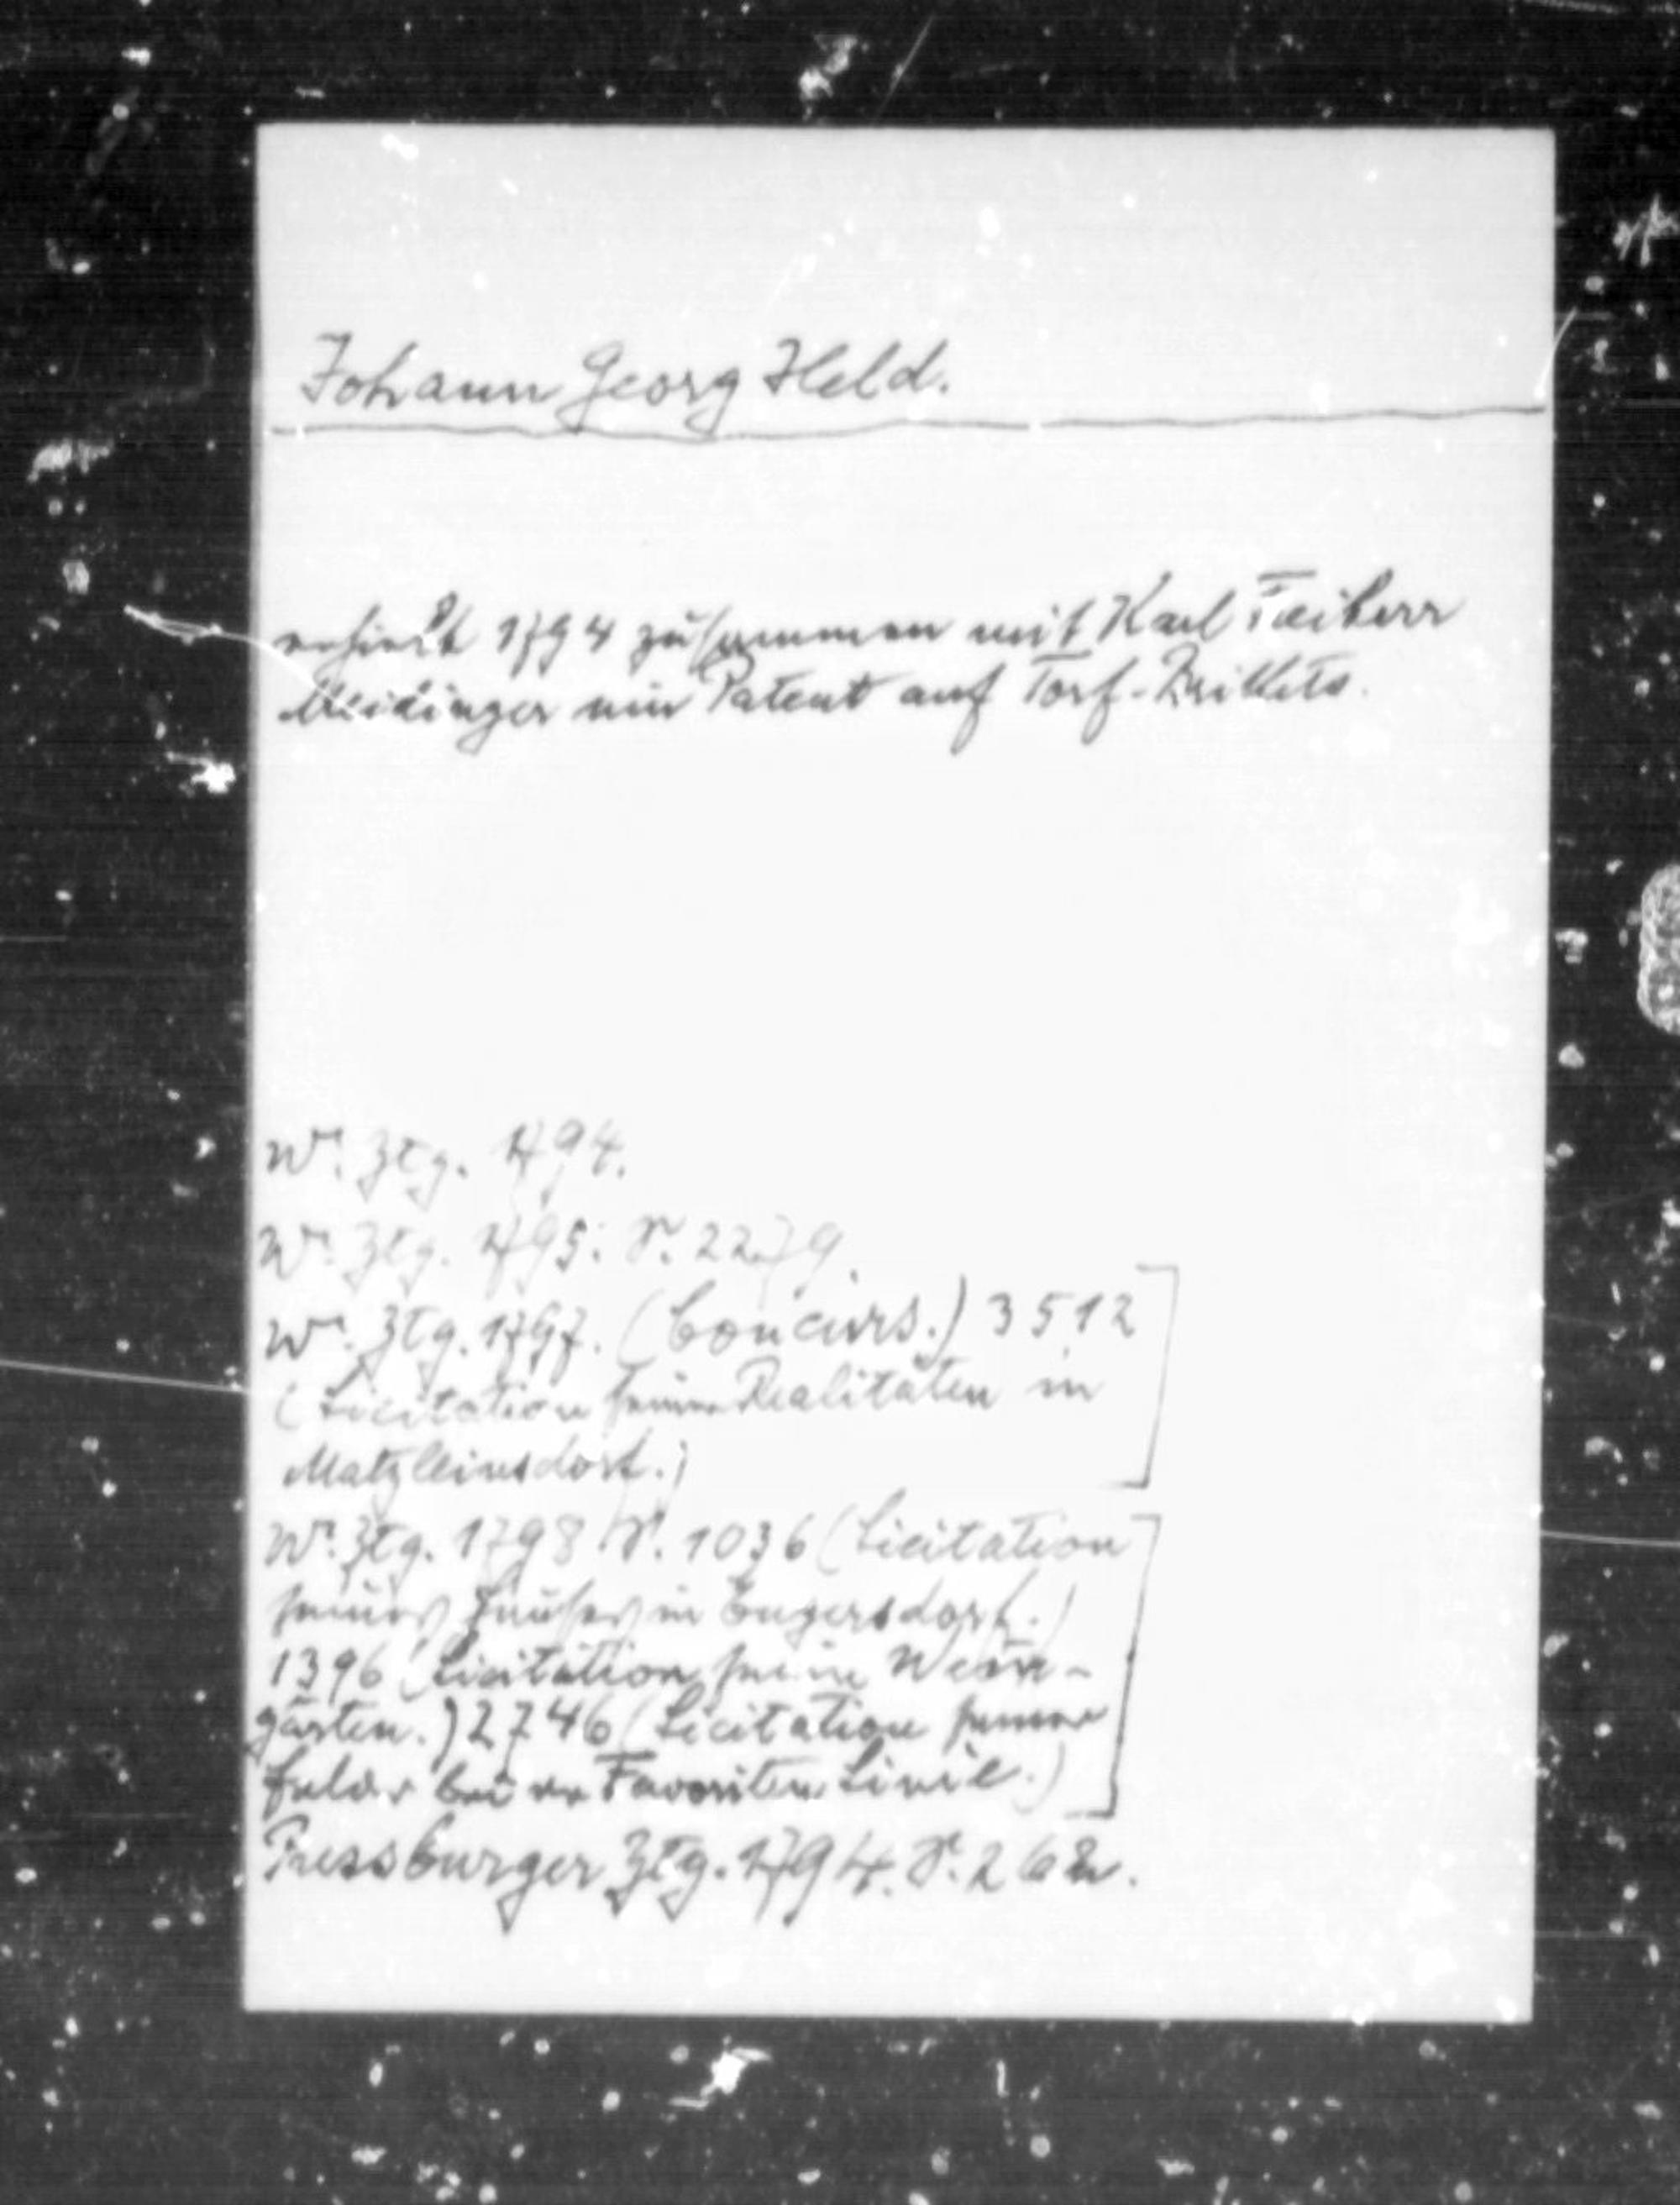 Johann Georg Held.
erhielt 1794 zusammen mit Karl Freiherr
Meidinger ein Patent auf Torf-Brikets.
W. Ztg. 1794.
W. Ztg. 1795: S. 2279.
W. Ztg. 1797. (Concurs.) 3512
(Licitation seiner Realitäten in
Matzleinsdorf.)
W. Ztg. 1798 S. 1036 (Licitation
seines Hauses in Engersdorf.)
1396 (Licitation seiner Wein-
gärten.) 2746 (Licitation seiner
Felder bei der Favoriten Linie.)
Pressburger Ztg. 1794. S.